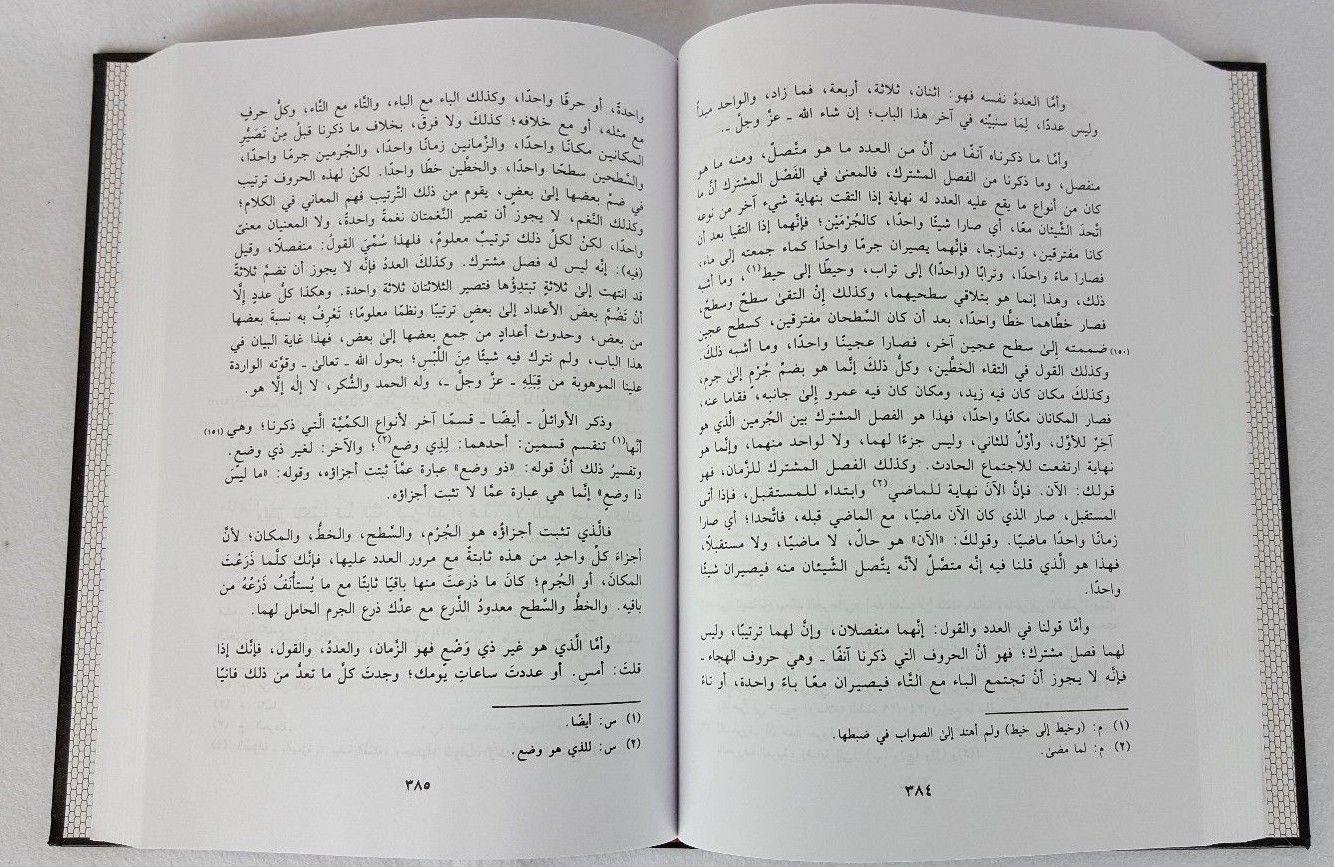 وأمَّا العددُ نفسه فهو: اثنان، ثلاثة، أربعة، فما زاد، والواحد مبدأ
وليس عددًا، لِمَا سنبيِّنه في آخر هذا الباب؛ إن شاء الله ـ عزَّ وجلَّ ـ.
وأمَّا ما ذكرناه آنفًا من أنَّ من العدد ما هو متَّصلٌ، ومنه ما هو
منفصل، وما ذكرنا من الفصل المشترك، فالمعنىٰ في الفَصْل المشترك أنَّ ما
كان من أنواع ما يقع عليه العدد له نهاية إذا التقت بنهاية شيء آخر من نوعه
اتَّحدَ الشَّيئان معًا، أي صارا شيئًا واحدًا، كالجُرْمَيْن؛ فإنَّهما إذا التقيا بعد أن
كانا مفترقين، وتمازجا، فإنَّهما يصيران جرمًا واحدًا كماء جمعته إلى ماء،
فصارا ماءً واحدًا، وترابًا (واحدًا) إلى تراب، وحيطًا إلى حيط(١)، وما أشبه
ذلك، وهذا إنما هو بتلاقي سطحيهما، وكذلك إنْ التقىٰ سطحٌ وسطحٌ،
فصار خطَّاهما خطًّا واحدًا، بعد أن كان السَّطحان مفترقين، كسطح عجين
(١٥٠) ضممته إلىٰ سطح عجين آخر، فصارا عجينًا واحدًا، وما أشبه ذلك.
وكذلك القول في التقاء الخطَّين، وكلُّ ذلك إنَّما هو بضمِّ جُرْمٍ إلىٰ جرم،
وكذلك مكان كان فيه زيد، ومكان كان فيه عمرو إلىٰ جانبه، فقاما عنه،
فصار المكانان مكانًا واحدًا، فهذا هو الفصل المشترك بين الجُرمين الَّذي هو
آخِرٌ للأوَّل، وأوَّلٌ للثاني، وليس جزءًا لهما، ولا لواحد منهما، وإنَّما هو
نهاية ارتفعت للاجتماع الحادث. وكذلك الفصل المشترك للزَّمان، فهو
قولك: الآن. فإنَّ الآنَ نهاية للماضي(٢) وابتداء للمستقبل، فإذا أتى
المستقبل، صار الذي كان الآن ماضيًا، مع الماضي قبله، فاتَّحدا؛ أي صارا
زمانًا واحدًا ماضيًا. وقولكَ: «الآن» هو حالٌ، لا ماضيًا، ولا مستقبلًا،
فهذا هو الَّذي قلنا فيه إنَّه متصِّلٌ لأنه يتَّصل الشَّيئان منه فيصيران شيئًا
واحدًا.
وأمَّا قولنا في العدد والقول: إنَّهما منفصلان، وإنَّ لهما ترتيبًا، وليس
لهما فصل مشترك؛ فهو أنَّ الحروف التي ذكرنا آنفًا ـ وهي حروف الهجاء ـ
فإنَّه لا يجوز أنْ تجتمع الباء مع التَّاء فيصيران معًا باءً واحدة، أو تاءً
(١) م: (وخيط إلى خيط) ولم أهتد إلىٰ الصواب في ضبطها.
(٢) م: لما مضىٰ.
٣٨٤
واحدةً، أو حرفًا واحدًا، وكذلك الباء مع الباء، والتَّاء مع التَّاء، وكلُّ حرفٍ
مع مثله، أو مع خلافه؛ كذلكَ ولا فرقَ، بخلاف ما ذكرنا قبلُ مِنْ تَصَيُّرِ
المكانين مكانًا واحدًا، والزَّمانين زمانًا واحدًا، والجُرمين جرمًا واحدًا،
والسَّطحين سطحًا واحدًا، والخطَّين خطًّا واحدًا. لكنْ لهذه الحروف ترتيب
في ضمِّ بعضها إلىٰ بعضٍ، يقوم من ذلك التَّرتيب فهم المعاني في الكلام؛
وكذلك النَّغم، لا يجوز أن تصير النَّغمتان نغمةً واحدةً، ولا المعنيان معنىً
واحدًا، لكنْ لكلِّ ذلك ترتيبٌ معلومٌ، فلهذا سُمِّيَ القولُ: منفصلًا، وقيل
(فيه): إنَّه ليس له فصل مشترك. وكذلكَ العددُ فإنَّه لا يجوز أن تضمَّ ثلاثةً
قد انتهت إلىٰ ثلاثةٍ تبتدِؤُها فتصير الثلاثتان ثلاثة واحدة. وهكذا كلُّ عددٍ إلَّا
أنْ تَضُمَّ بعضَ الأعداد إلىٰ بعض ترتيبًا ونظمًا معلومًا؛ تَعْرِفُ به نسبةَ بعضها
من بعض، وحدوث أعدادٍ من جمع بعضها إلىٰ بعض، فهذا غاية البيان في
هذا الباب، ولم نترك فيه شيئًا مِنَ اللَّبْسِ؛ بحول الله ـ تعالىٰ ـ وقوَّته الواردة
علينا الموهوبة من قِبَلِهِ ـ عزَّ وجلَّ ـ، وله الحمد والشُّكر، لا إلٰه إلَّا هو.
وذكر الأوائلُ ـ أيضًا ـ قسمًا آخر لأنواع الكمِّيَّة الَّتي ذكرنا؛ وهي (١٥١)
أنَّها(١) تنقسم قسمين: أحدهما: لِذِي وضعٍ(٢)؛ والآخر: لغير ذي وضع.
وتفسيرُ ذلك أنَّ قوله: «ذو وضع» عبارة عمَّا ثبتت أجزاؤه، وقوله: «ما ليْسَ
ذا وضعٍ» إنَّما هي عبارة عمَّا لا تثبت أجزاؤه.
فالَّذي تثبت أجزاؤُه هو الجُرْم، والسَّطح، والخطُّ، والمكان؛ لأنَّ
أجزاءَ كلِّ واحدٍ من هذه ثابتةٌ مع مرور العدد عليها، فإنَّك كلَّما ذَرَعْتَ
المكانَ، أو الجُرم؛ كانَ ما ذرعتَ منها باقيًا ثابتًا مع ما يُستأنَفُ ذَرْعُهُ من
باقيه. والخطُّ والسَّطح معدودُ الذَّرع مع عدِّك ذرع الجرم الحامل لهما.
وأمَّا الَّذي هو غير ذي وَضْعٍ فهو الزَّمان، والعددُ، والقول، فإنَّك إذا
قلتَ: أمسِ. أو عددتَ ساعاتِ يومك؛ وجدتَ كلَّ ما تعدُّ من ذلك فانيًا
(١) س: أيضًا.
(٢) س: للذي هو وضع.
٣٨٥